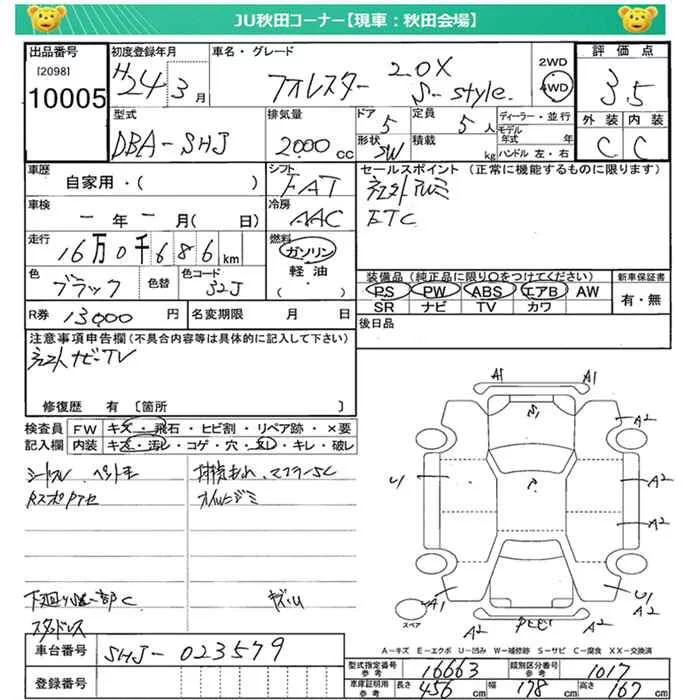 JU秋田コーナー【現車：秋田会場】
出品番号 初度登録年月 車名・グレード 評価点
[2098]
10005
H24 3月
フォレスター 2.0X S-style.
2WD
4WD
3.5
型式 排気量 ドア 定員 ディーラー・並行 外装 内装
DBA-SHJ 2000cc 5 5人
モデル年式 年
形状 積載
SW kg
ハンドル 左・右
C C
車歴 シフト セールスポイント（正常に機能するものに限ります）
自家用・（ ） FAT
社外アルミ
ETC
車検 冷房
一年一月（ 日） AAC
走行 燃料
16万0千686km
ガソリン
軽油
（ ）
色 色替 色コード
ブラック 32J
装備品（純正品に限り○をつけてください） 新車保証書
PS PW ABS エアB AW
SR ナビ TV カワ
有・無
R券 13000円 名変期限 月 日
後日品
注意事項申告欄（不具合内容等は具体的に記入して下さい）
社外ナビTV
修復歴 有〔箇所 〕
検査員記入欄
FW キズ・飛石・ヒビ割・リペア跡・×要
内装 キズ・汚レ・コゲ・穴・スレ・キレ・破レ
下廻り 一部C キズ、U
スタッドレス
A1 A1
S1
A2 A2
U1
A2
A2
A1
U1
A2
A2
A2
スペア
A－キズ E－エクボ U－凹み W－補修跡 S－サビ C－腐食 XX－交換済
車台番号 SHJ-023579
登録番号
型式指定番号 参考 16663 類別区分番号 参考 1017
車庫証明用 参考 長さ 456cm 幅 178cm 高さ 167cm